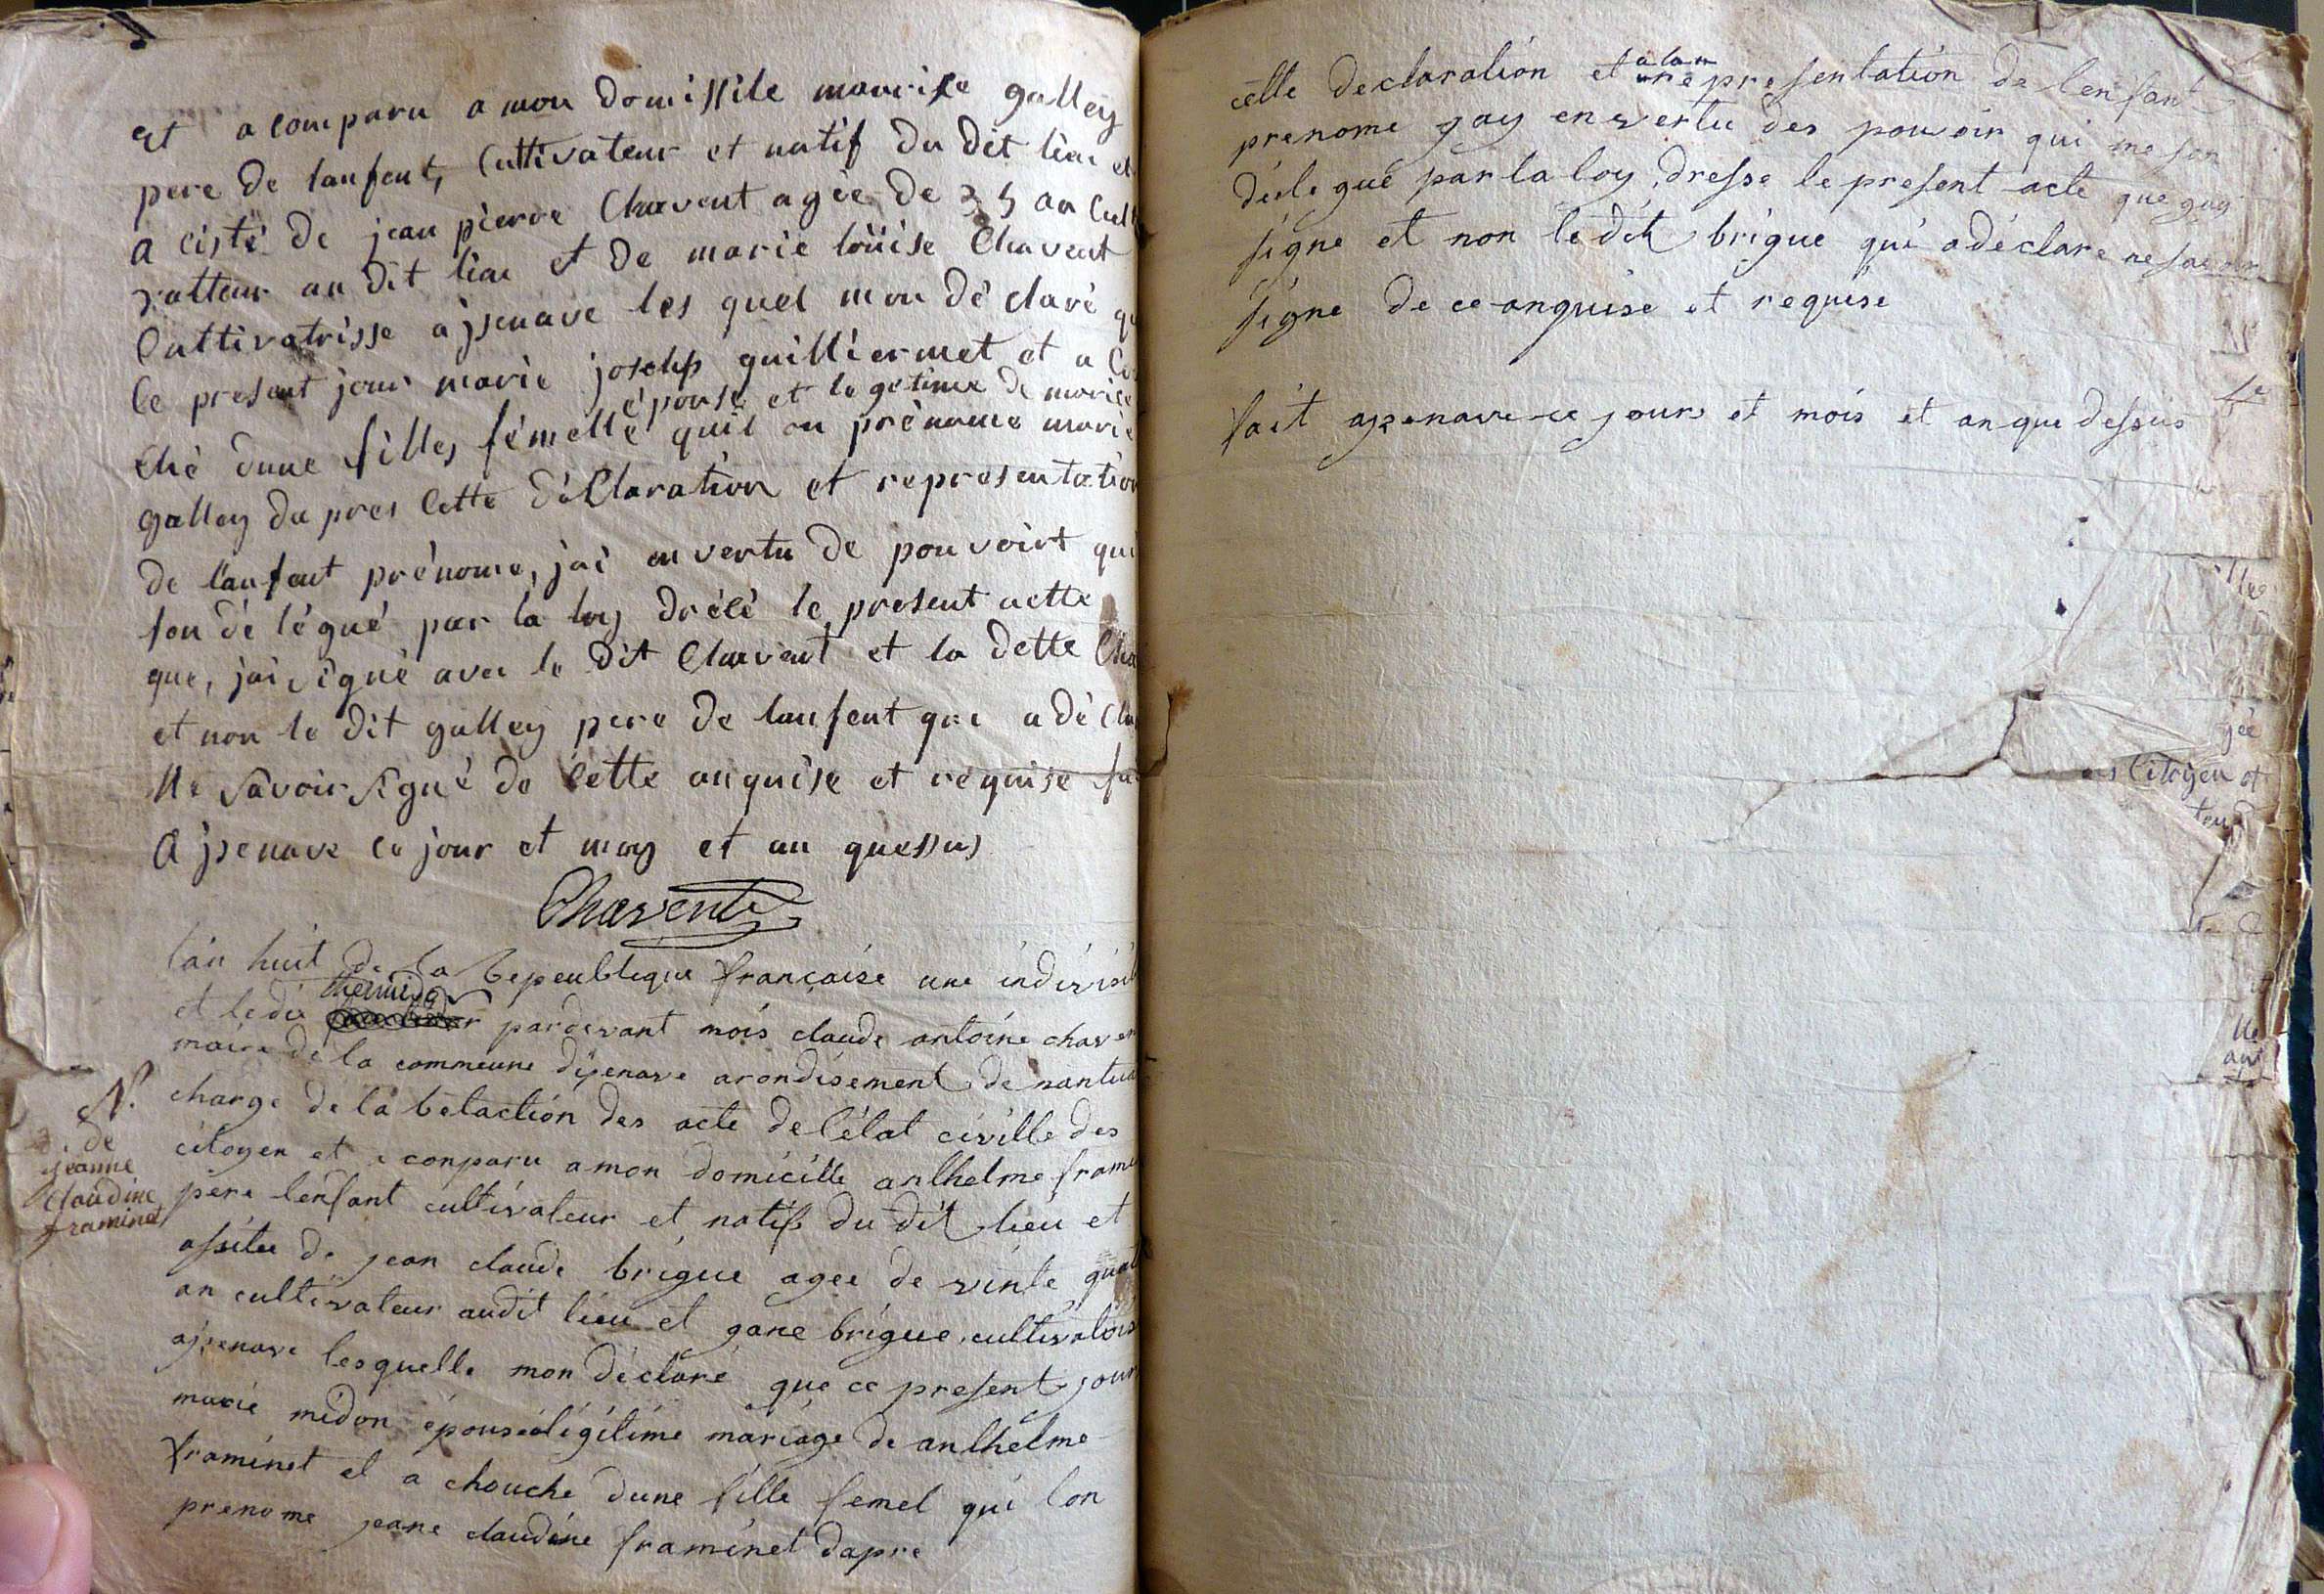 et a comparu a mon domissile maurise galley
pere de lanfent, Cultivateur et natif du dit lieu et
a cisté de jean pierre Chavent agée de 35 an Cult
vatteur au dit lieu et de marie loüise Chavent
Cultivatrisse a jsenave les quel mon dé claré qu
ce present jour marie joseph guilliermet et a Cou
épouse et le getime de marice
ché dune filles fémelle quil on prénome marie
galley da pres Cette déClaration et representation
de lanfent prénome, jai en vertu de pouvoirt qui
son dé légué par la loy drécé le present actte
que, jai signé avec le dit Chavent et la dette Cha
et non le dit galley pere de lanfent qui a dé Cla
Ne savoir signé de Cette anquise et requise fai
A jsenave ce jour et moy et an quessus
Chavent
lan huit de la bepeublique française une indivisib
thermido
et le dix r pardevant mois claude antoine chaven
maire de la commeune dizenave arondisement de nantua
charge de la betaction des acte de létat civille des
citoyen et a conparu a mon domicille anlhelme frami
pere lenfant cultivateur et natif du dit lieu et
assitee de jean claude brigue agee de vinte quat
an cultivateur audit lieu et gane brigue cultivatois
ajsenave lesquelle mon déclaré que ce present jour
marie midon épouse légitime mariage de anlhelme
framinet et a chouche dune fille femel qui lon
prenome jeane claudine framinet dapre
N.
de
jeanne
claudine
framinet
cette declaration et a la representation de lenfant
prenome jay en vertu des pouvoir qui me son
délegué par la loy, dresse le present acte que jay
signe et non le dit brigue qui a déclare ne savoir
signe de ce anquise et requise
fait azenave ce jours et mois et an que dessus
Citoyen et